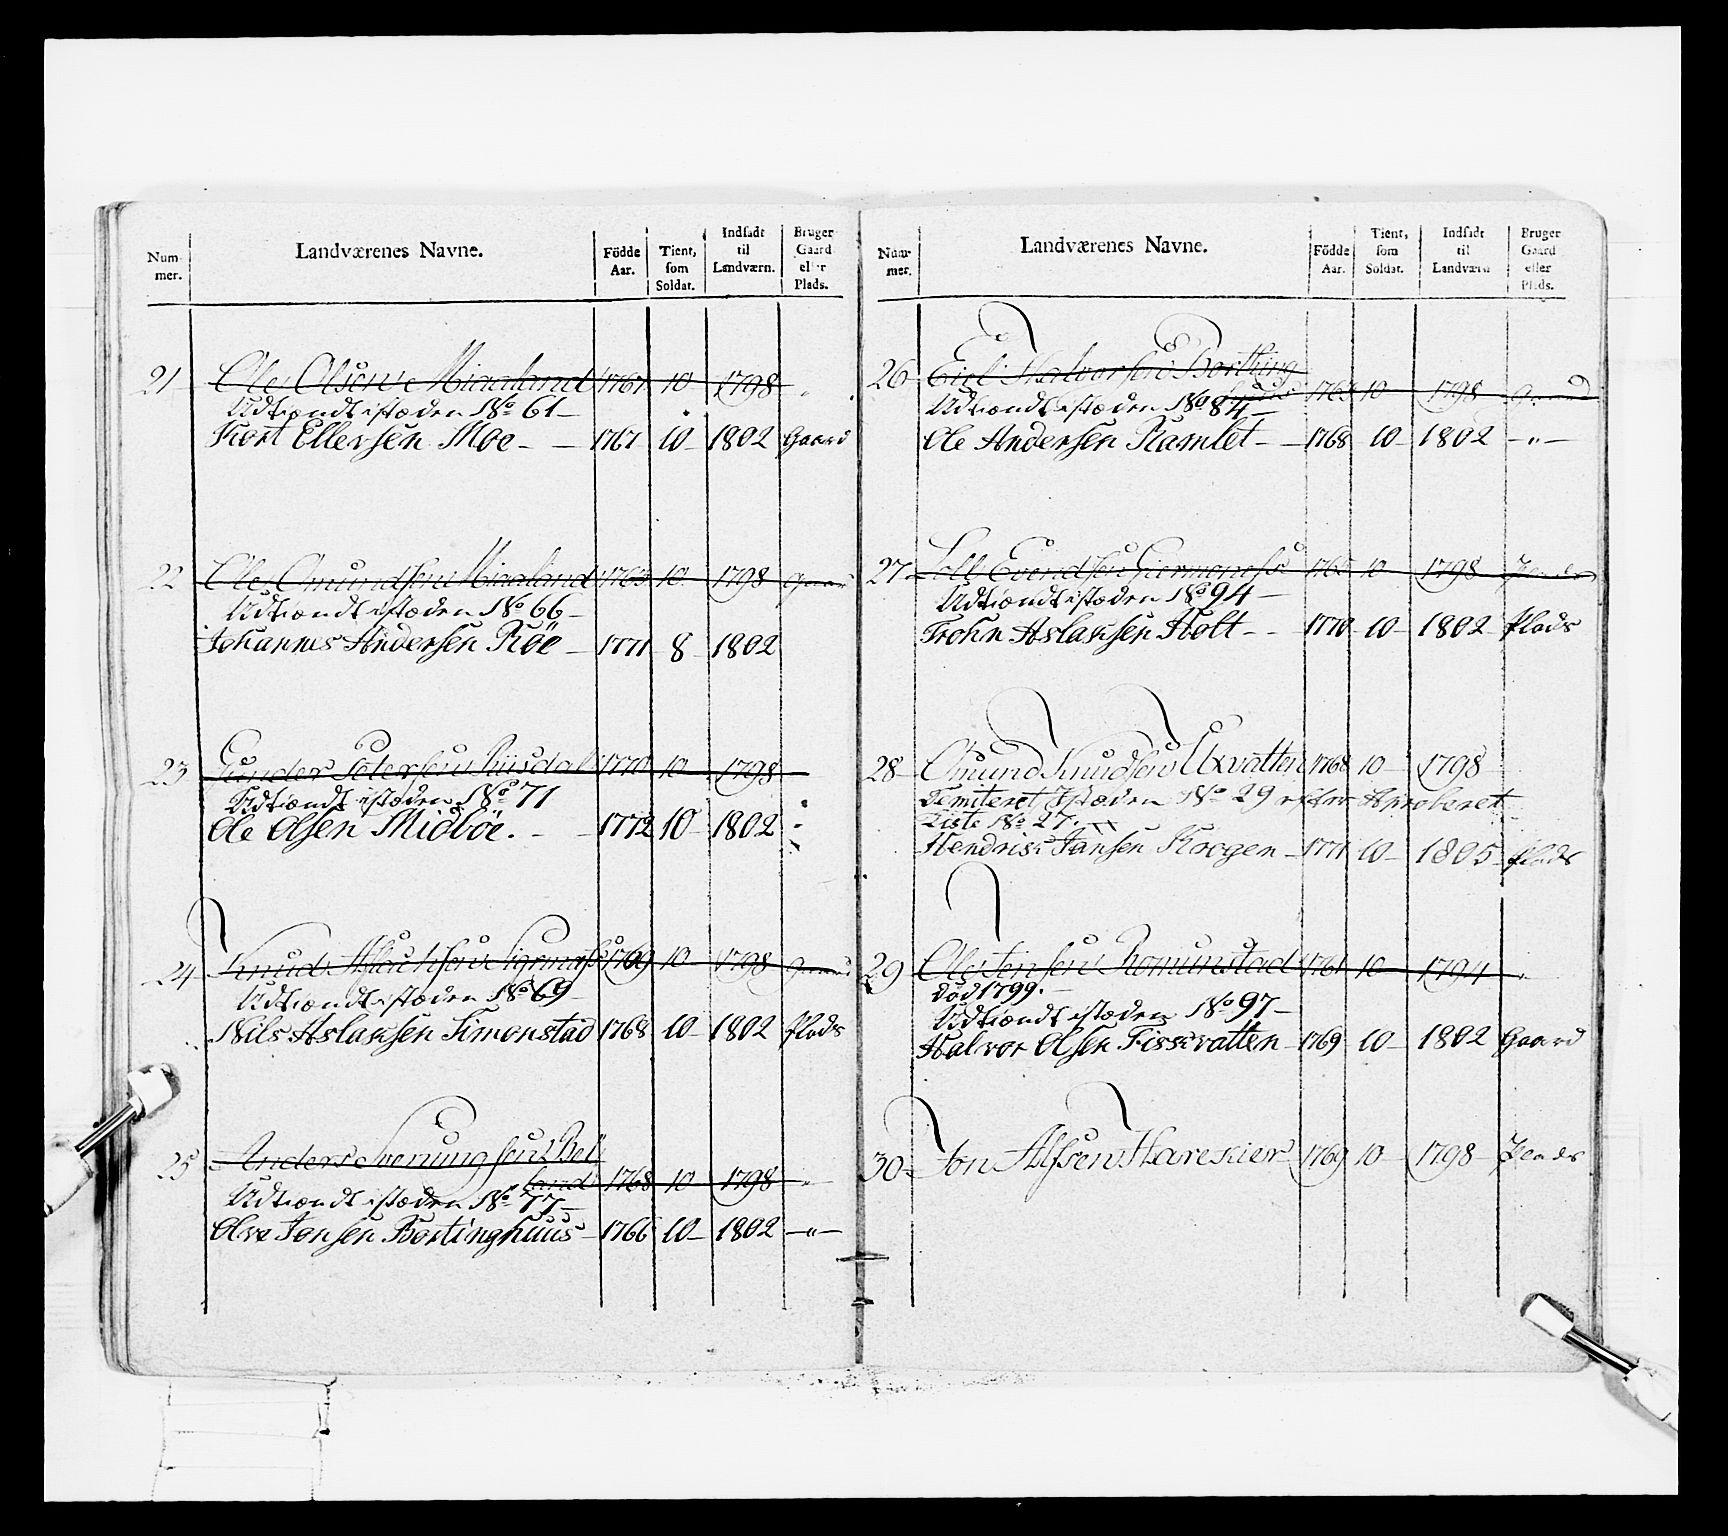 Num- mer. Landværenes Navne. Födde Aar. Tient, som Soldat. Indsadt til Landværn. Bruger Gaard eller Plads.
21 Ole Olsen Miaaland 1767 10 1798 "
Udtiændt istæden No 61 —
Kort Ellersen Moe — — 1767 10 1802 Gaard
22 Ole Omundsen Miaaland 1763 10 1798 Gaard
Udtiændt istæden No 66 —
Johannes Andersen Röe — 1771 8 1802
23 Gunder Petersen 1770 10 1798
Udtiændt istæden No 71
Ole Olsen Midböe. — — 1772 10 1802 "
24 Knud Aslachsen 1769 10 1798 Gaard
Udtiændt istæden No 69
Nils Aslaksen Simonstad 1768 10 1802 Plads
25 Anders Svenungsen Bel
land 1768 10 1798 "
Udtiændt istæden No 77 —
Olve Jonsen Bortinghuus — 1766 10 1802 — " —
Num- mer. Landværenes Navne. Födde Aar. Tient, som Soldat. Indsadt til Landværn. Bruger Gaard eller Plads.
26 Eivl Halvorsen Borthing
huus 1763 10 1798 Gaard
Udtiændt istæden No 84 —
Ole Andersen Ramlet — — 1768 10 1802 — " —
27 Evendsen 1765 10 1798
Udtiændt istæden No 94 —
Trohn Aslaksen Holt — — 1770 10 1802 Plads
28 Omund Knudsen Uxvatten 1768 10 1798
Demiteret Istæden No 29 efter Aproberet
Liste No 27.
Hendrik Jansen Krogen — 1771 10 1805 Plads
29 Ole Jensen Romunstad 1761 10 1794 "
död 1799. —
Udtiændt istæden No 97 —
Halvor Olsen Fiskvatten 1769 10 1802 Gaard
30 Jon Alfsen Hareskier 1769 10 1798 Plads